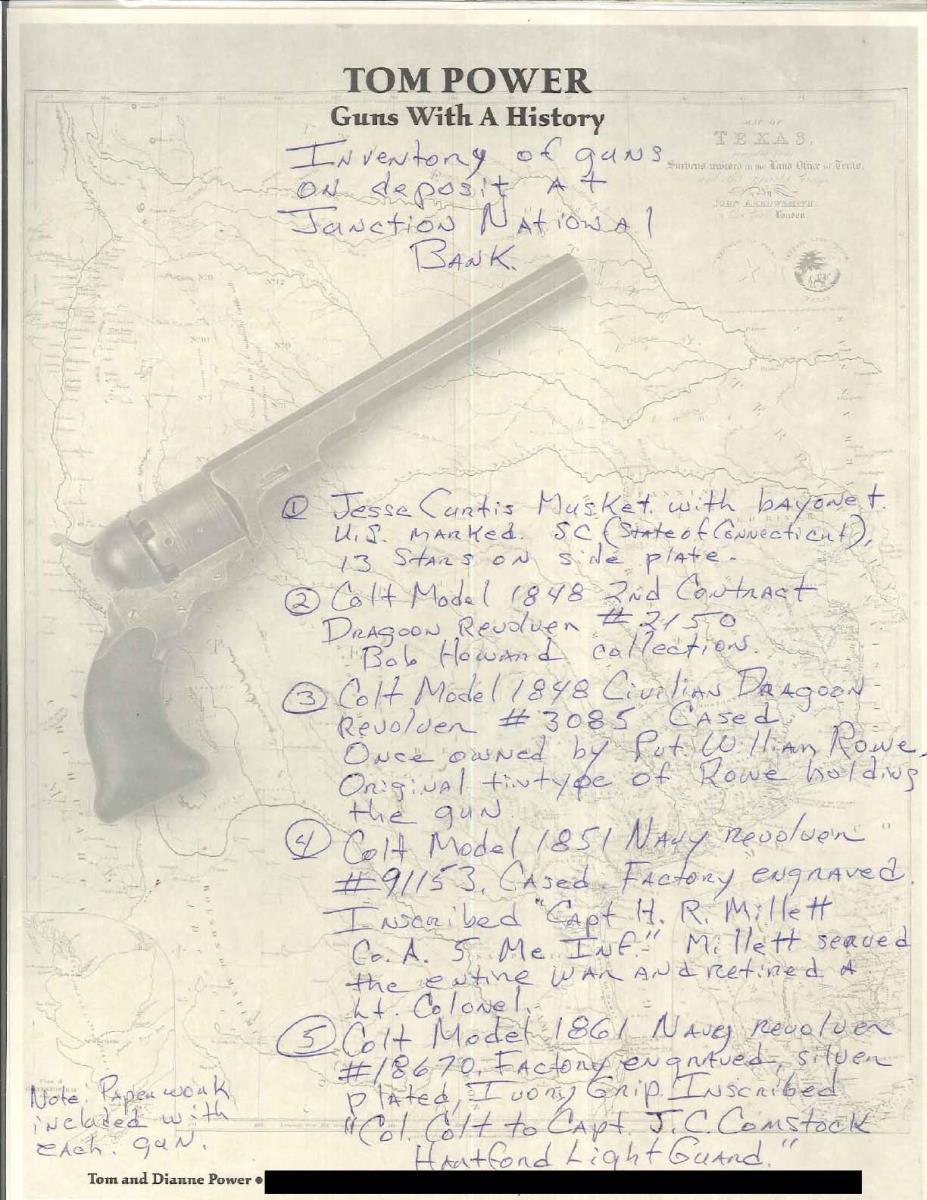 TOM POWER
Guns With A History
MAP OF
TEXAS,
Surveys recorded in the Land Office of Texas,
JOHN ARROWSMITH
London
Inventory of guns
on deposit At
Junction National
Bank.
① Jesse Curtis Musket with bayonet.
U.S. marked. SC (State of Connecticut),
13 Stars on side plate.
② Colt Model 1848 2nd Contract
Dragoon Revolver #2150
Bob Howard collection.
③ Colt Model 1848 Civilian Dragoon
Revolver #3085 Cased
Once owned by Pvt. William Rowe,
Original tintype of Rowe holding
the gun
④ Colt Model 1851 Navy revolver
#91153. Cased. Factory engraved.
Inscribed "Capt H. R. Millett
Co. A. 5 Me Inf." Millett served
the entire war and retired a
Lt. Colonel.
⑤ Colt Model 1861 Navy revolver
#18670. Factory engraved, silver
plated, Ivory Grip. Inscribed
"Col. Colt to Capt. J.C. Comstock
Hartford Light Guard."
Note: Paperwork
included with
each gun.
Tom and Dianne Power •